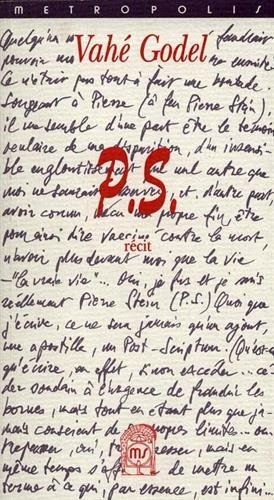 METROPOLIS
Quelqu'un Vahé Godel faudrait
pouvoir ensuite
Ce n'était pas tout à fait une boutade.
Songeant à Pierre (à feu Pierre Stein)
il me semble d'une part être le témoin
oculaire de ma disposition, d'un insensible
engloutissement un autre que
moi ne saurait, et, d'autre part,
avoir connu, vécu ma propre fin, être
pour ainsi dire vacciné contre la mort,
n'avoir plus devant moi que la vie
P.S.
récit
"la vraie vie"... Oui, je fus et je suis
réellement Pierre Stein (P.S.) Quoi que
j'écrive, ce ne sera jamais qu'un ajout,
une apostille, un Post-Scriptum. (Qu'est-ce
qu'écrire, en effet, sinon excéder... cé-
der soudain à l'urgence de franchir les
bornes, mais tout en étant plus que ja-
mais conscient de propres limites... ou-
trepasser, oui, mais en
même temps s' de mettre un
terme à ce qui, par essence, est infini...
ms